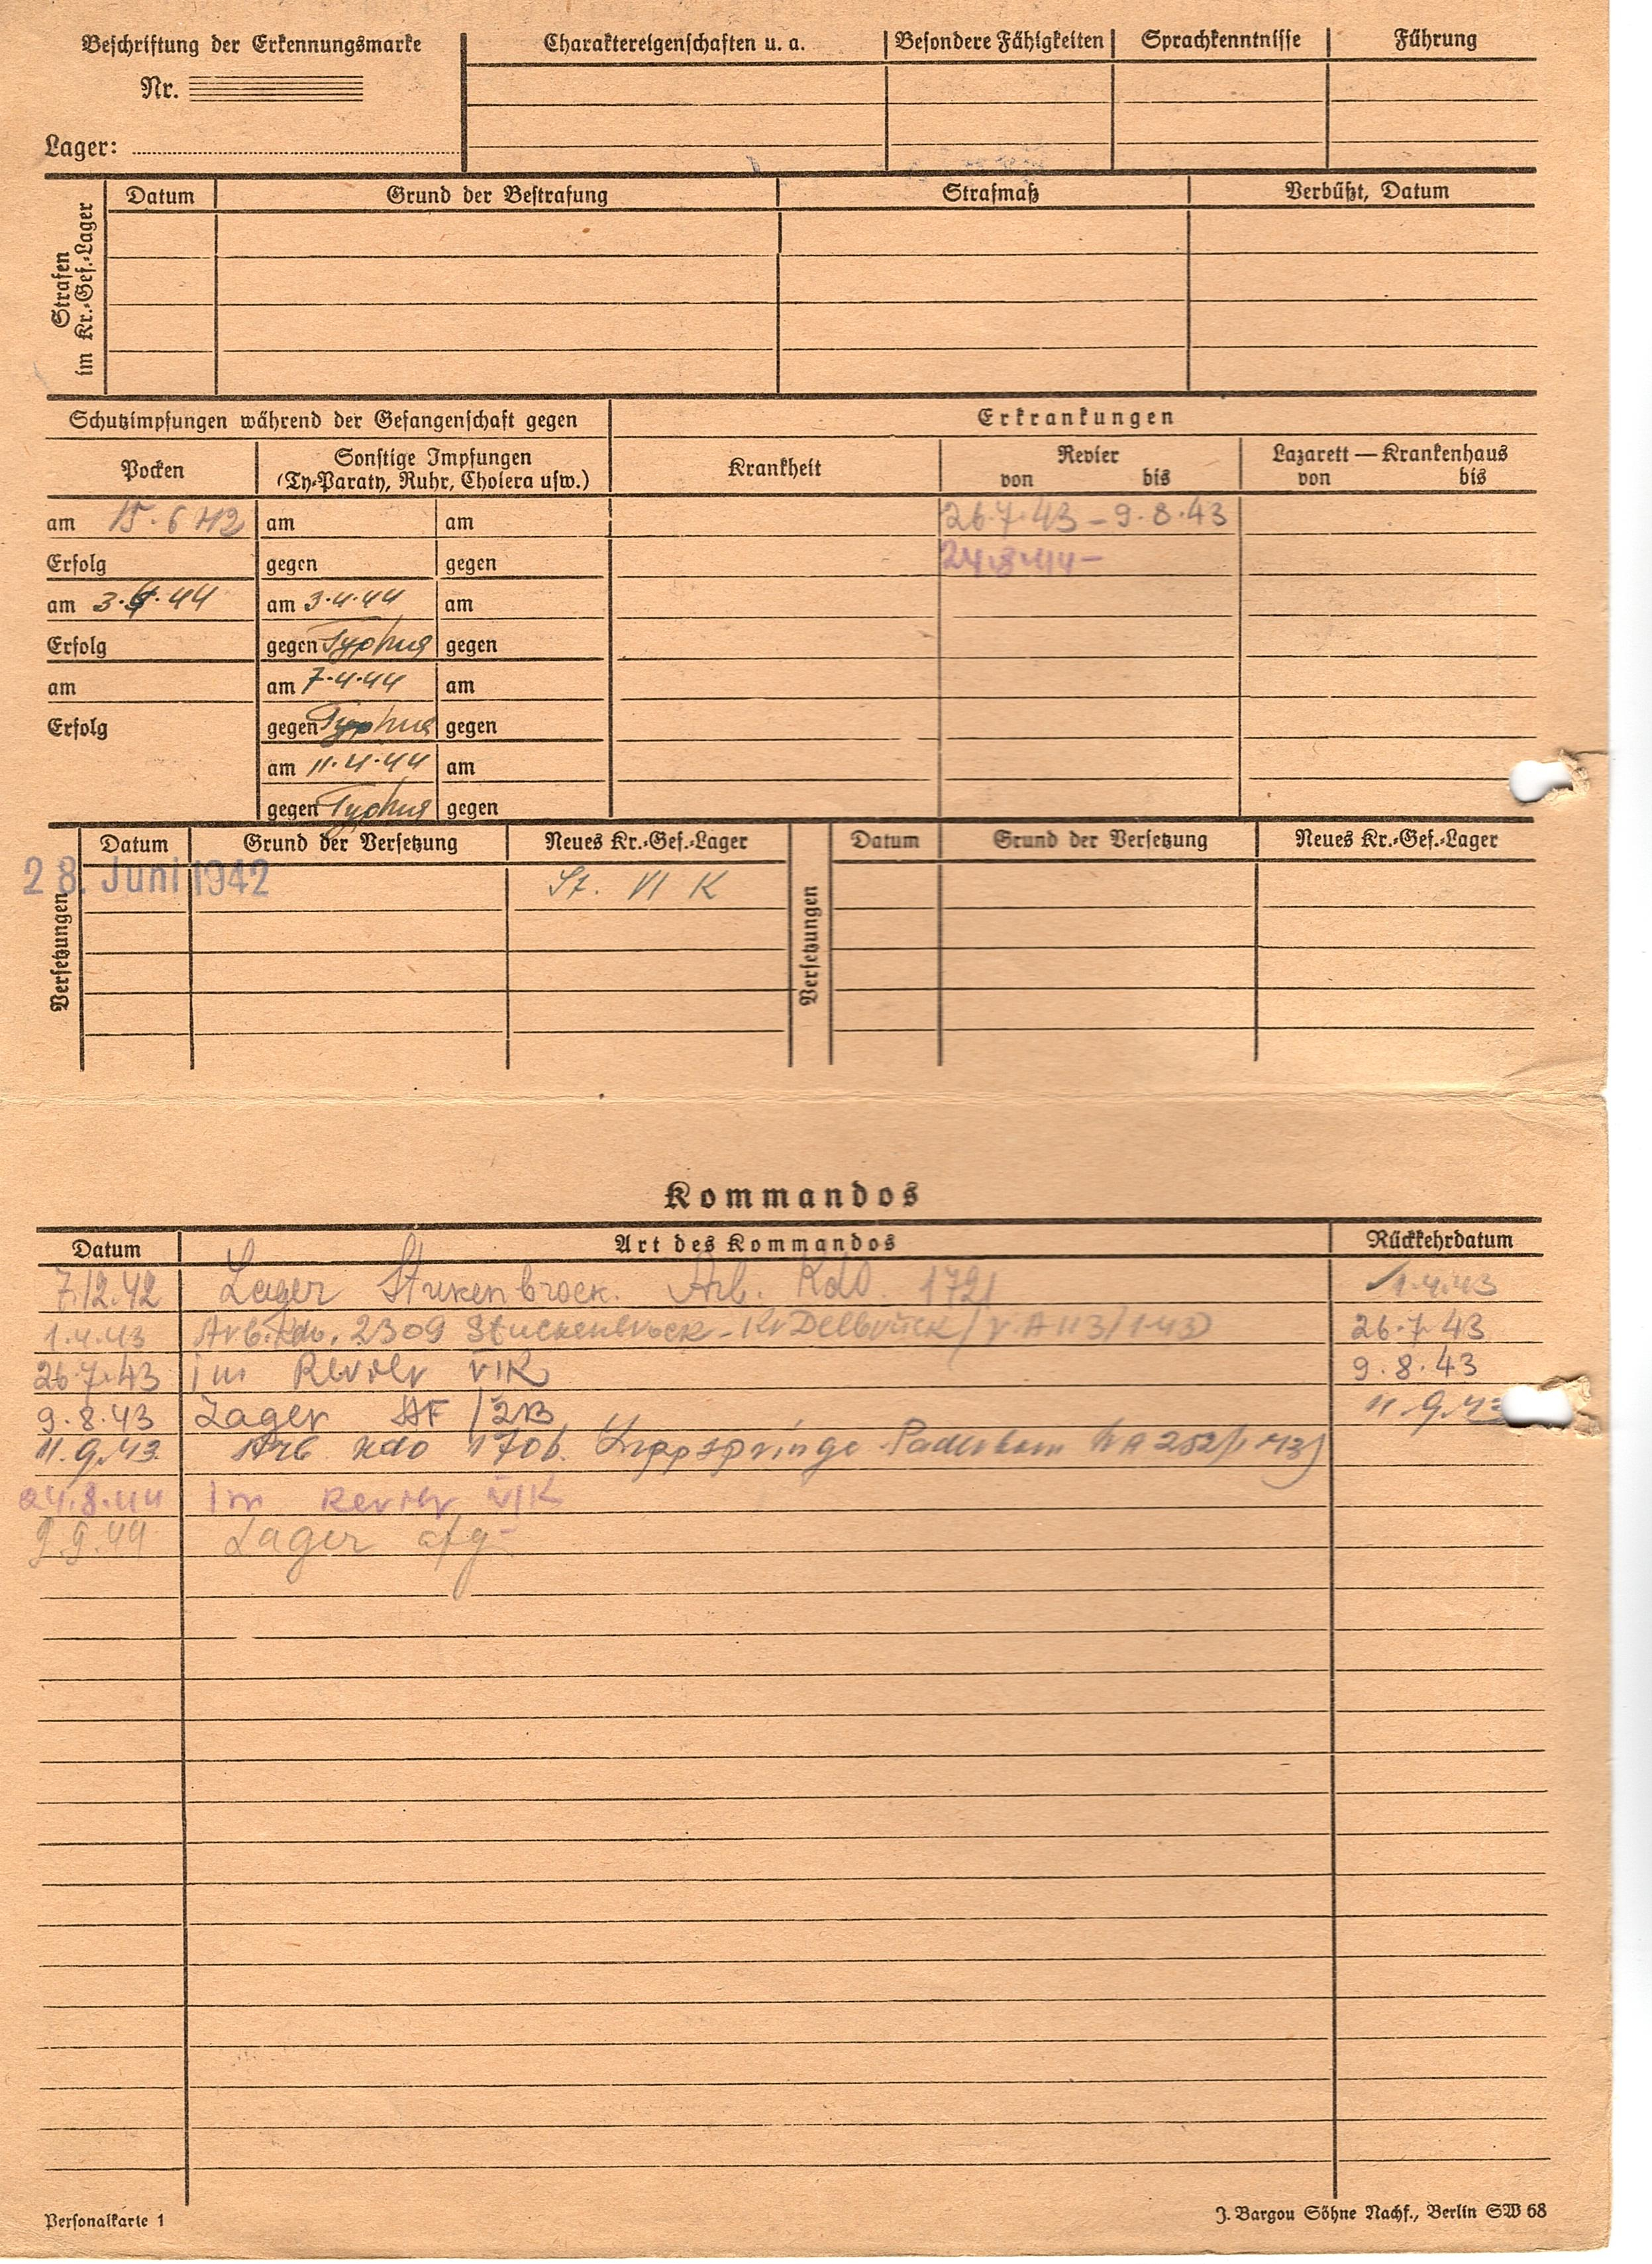 Beschriftung der Erkennungsmarke
Nr.
Lager:
Charaktereigenschaften u. a. Besondere Fähigkeiten Sprachkenntnisse Führung
Strafen
im Kr.-Gef.-Lager
Datum Grund der Bestrafung Strafmaß Verbüßt, Datum
Schutzimpfungen während der Gefangenschaft gegen
Erkrankungen
Pocken
Sonstige Impfungen
(Ty-Paraty, Ruhr, Cholera usw.)
Krankheit
Revier
von bis
Lazarett — Krankenhaus
von bis
am 15.6.42 am am 26.7.43 - 9.8.43
Erfolg gegen gegen 24.8.44 -
am 3.4.44 am 3.4.44 am
Erfolg gegen Typhus gegen
am am 7.4.44 am
Erfolg gegen Typhus gegen
am 11.4.44 am
gegen Typhus gegen
Versetzungen
Datum Grund der Versetzung Neues Kr.-Gef.-Lager
28. Juni 1942 St. VI K
Versetzungen
Datum Grund der Versetzung Neues Kr.-Gef.-Lager
Kommandos
Datum Art des Kommandos Rückkehrdatum
7.12.42 Lager Stukenbrock. Arb. Kdo. 1721 1.4.43
1.4.43 Arb. Kdo. 2309 Stuckenbrock - Kr Delbrück 26.7.43
26.7.43 im Revier VIK 9.8.43
9.8.43 Lager 11.9.43
11.9.43. Arb Kdo 1706. Lippspringe Paderborn
24.8.44 Im Revier VIK
9.9.44 Lager
Personalkarte 1
J. Bargou Söhne Nachf., Berlin SW 68